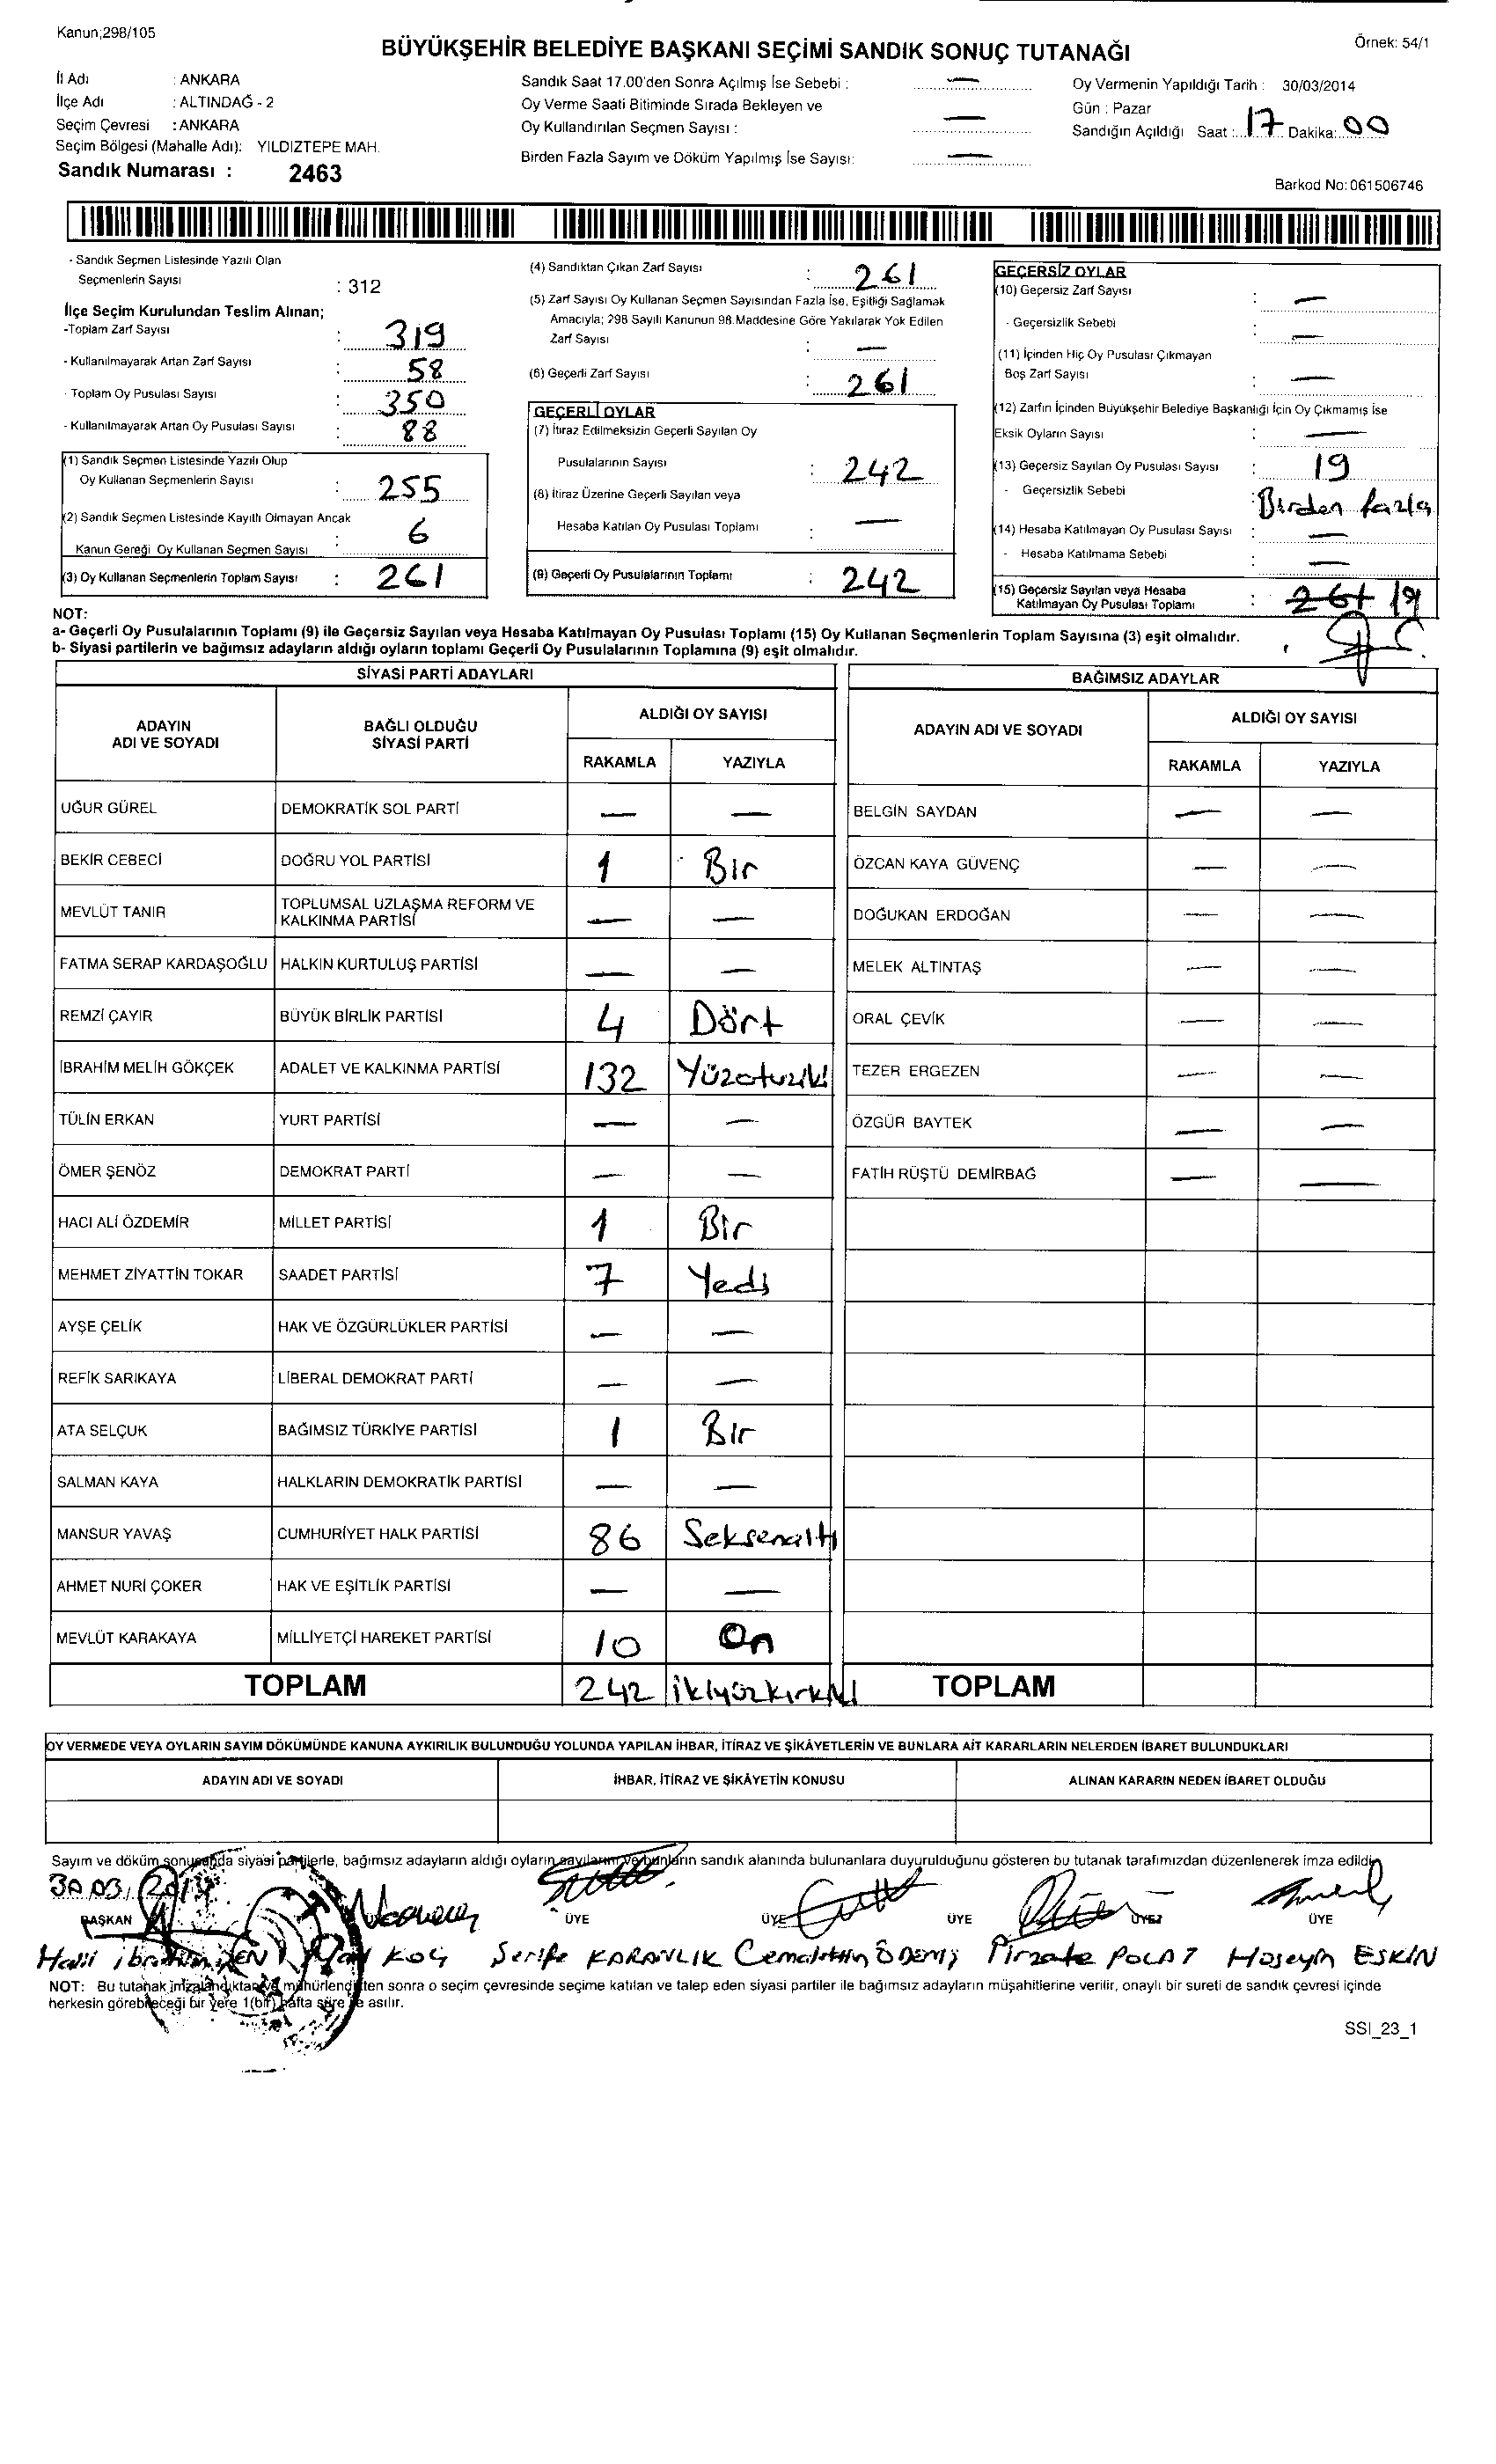 Kanun;298/105
Örnek: 54/1
BÜYÜKŞEHİR BELEDİYE BAŞKANI SEÇİMİ SANDIK SONUÇ TUTANAĞI
İl Adı : ANKARA
İlçe Adı : ALTINDAĞ - 2
Seçim Çevresi : ANKARA
Seçim Bölgesi (Mahalle Adı): YILDIZTEPE MAH.
Sandık Numarası : 2463
Sandık Saat 17.00'den Sonra Açılmış İse Sebebi : —
Oy Verme Saati Bitiminde Sırada Bekleyen ve
Oy Kullandırılan Seçmen Sayısı : —
Birden Fazla Sayım ve Döküm Yapılmış İse Sayısı: —
Oy Vermenin Yapıldığı Tarih : 30/03/2014
Gün : Pazar
Sandığın Açıldığı Saat : 17 Dakika: 00
Barkod No: 061506746
- Sandık Seçmen Listesinde Yazılı Olan
Seçmenlerin Sayısı : 312
İlçe Seçim Kurulundan Teslim Alınan;
-Toplam Zarf Sayısı : 319
- Kullanılmayarak Artan Zarf Sayısı : 58
- Toplam Oy Pusulası Sayısı : 350
- Kullanılmayarak Artan Oy Pusulası Sayısı : 88
(1) Sandık Seçmen Listesinde Yazılı Olup
Oy Kullanan Seçmenlerin Sayısı : 255
(2) Sandık Seçmen Listesinde Kayıtlı Olmayan Ancak
Kanun Gereği Oy Kullanan Seçmen Sayısı : 6
(3) Oy Kullanan Seçmenlerin Toplam Sayısı : 261
(4) Sandıktan Çıkan Zarf Sayısı : 261
(5) Zarf Sayısı Oy Kullanan Seçmen Sayısından Fazla İse, Eşitliği Sağlamak
Amacıyla; 298 Sayılı Kanunun 98.Maddesine Göre Yakılarak Yok Edilen
Zarf Sayısı : —
(6) Geçerli Zarf Sayısı : 261
GEÇERLİ OYLAR
(7) İtiraz Edilmeksizin Geçerli Sayılan Oy
Pusulalarının Sayısı : 242
(8) İtiraz Üzerine Geçerli Sayılan veya
Hesaba Katılan Oy Pusulası Toplamı : —
(9) Geçerli Oy Pusulalarının Toplamı : 242
GEÇERSİZ OYLAR
(10) Geçersiz Zarf Sayısı : —
- Geçersizlik Sebebi : —
(11) İçinden Hiç Oy Pusulası Çıkmayan
Boş Zarf Sayısı : —
(12) Zarfın İçinden Büyükşehir Belediye Başkanlığı İçin Oy Çıkmamış İse
Eksik Oyların Sayısı : —
(13) Geçersiz Sayılan Oy Pusulası Sayısı : 19
- Geçersizlik Sebebi : Birden fazla
(14) Hesaba Katılmayan Oy Pusulası Sayısı : —
- Hesaba Katılmama Sebebi : —
(15) Geçersiz Sayılan veya Hesaba
Katılmayan Oy Pusulası Toplamı : 261 19
NOT:
a- Geçerli Oy Pusulalarının Toplamı (9) ile Geçersiz Sayılan veya Hesaba Katılmayan Oy Pusulası Toplamı (15) Oy Kullanan Seçmenlerin Toplam Sayısına (3) eşit olmalıdır.
b- Siyasi partilerin ve bağımsız adayların aldığı oyların toplamı Geçerli Oy Pusulalarının Toplamına (9) eşit olmalıdır.
SİYASİ PARTİ ADAYLARI
ADAYIN ADI VE SOYADI BAĞLI OLDUĞU SİYASİ PARTİ ALDIĞI OY SAYISI
RAKAMLA YAZIYLA
UĞUR GÜREL DEMOKRATİK SOL PARTİ — —
BEKİR CEBECİ DOĞRU YOL PARTİSİ 1 Bir
MEVLÜT TANIR TOPLUMSAL UZLAŞMA REFORM VE KALKINMA PARTİSİ — —
FATMA SERAP KARDAŞOĞLU HALKIN KURTULUŞ PARTİSİ — —
REMZİ ÇAYIR BÜYÜK BİRLİK PARTİSİ 4 Dört
İBRAHİM MELİH GÖKÇEK ADALET VE KALKINMA PARTİSİ 132 Yüzotuziki
TÜLİN ERKAN YURT PARTİSİ — —
ÖMER ŞENÖZ DEMOKRAT PARTİ — —
HACI ALİ ÖZDEMİR MİLLET PARTİSİ 1 Bir
MEHMET ZİYATTİN TOKAR SAADET PARTİSİ 7 Yedi
AYŞE ÇELİK HAK VE ÖZGÜRLÜKLER PARTİSİ — —
REFİK SARIKAYA LİBERAL DEMOKRAT PARTİ — —
ATA SELÇUK BAĞIMSIZ TÜRKİYE PARTİSİ 1 Bir
SALMAN KAYA HALKLARIN DEMOKRATİK PARTİSİ — —
MANSUR YAVAŞ CUMHURİYET HALK PARTİSİ 86 Seksenaltı
AHMET NURİ ÇOKER HAK VE EŞİTLİK PARTİSİ — —
MEVLÜT KARAKAYA MİLLİYETÇİ HAREKET PARTİSİ 10 On
TOPLAM 242 ikiyüzkırkiki
BAĞIMSIZ ADAYLAR
ADAYIN ADI VE SOYADI ALDIĞI OY SAYISI
RAKAMLA YAZIYLA
BELGİN SAYDAN — —
ÖZCAN KAYA GÜVENÇ — —
DOĞUKAN ERDOĞAN — —
MELEK ALTINTAŞ — —
ORAL ÇEVİK — —
TEZER ERGEZEN — —
ÖZGÜR BAYTEK — —
FATİH RÜŞTÜ DEMİRBAĞ — —
TOPLAM
OY VERMEDE VEYA OYLARIN SAYIM DÖKÜMÜNDE KANUNA AYKIRILIK BULUNDUĞU YOLUNDA YAPILAN İHBAR, İTİRAZ VE ŞİKÂYETLERİN VE BUNLARA AİT KARARLARIN NELERDEN İBARET BULUNDUKLARI
ADAYIN ADI VE SOYADI İHBAR, İTİRAZ VE ŞİKÂYETİN KONUSU ALINAN KARARIN NEDEN İBARET OLDUĞU
Sayım ve döküm sonucunda siyasi partilerle, bağımsız adayların aldığı oyların sayılarını ve bunların sandık alanında bulunanlara duyurulduğunu gösteren bu tutanak tarafımızdan düzenlenerek imza edildi.
30.03.2014
BAŞKAN ÜYE ÜYE ÜYE ÜYE ÜYE
Halil ibrahim KOÇ Şerife KARANLIK Cemalettin ÖDEMİŞ Pirzate POLAT Hüseyin ESKİN
NOT: Bu tutanak imzalandıktan ve mühürlendikten sonra o seçim çevresinde seçime katılan ve talep eden siyasi partiler ile bağımsız adayların müşahitlerine verilir, onaylı bir sureti de sandık çevresi içinde
herkesin görebileceği bir yere 1(bir) hafta süre ile asılır.
SSI_23_1